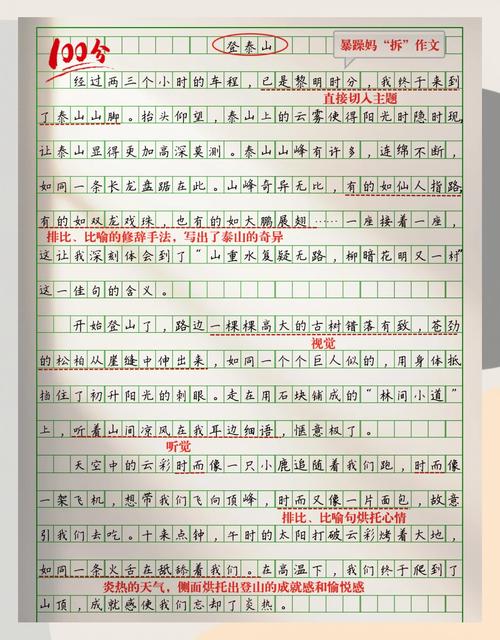 100分
登泰山
暴躁妈“拆”作文
经过两三个小时的车程，已是黎明时分，我终于来到
直接切入主题
了泰山山脚。抬头仰望，泰山上的云雾使得阳光时隐时现，
让泰山显得更加高深莫测。泰山山峰有许多，连绵不断，
如同一条长龙盘踞在此。山峰奇异无比，有的如仙人指路，
有的如双龙戏珠，也有的如大鹏展翅……一座接着一座，
排比、比喻的修辞手法，写出了泰山的奇异
这让我深刻体会到了“山重水复疑无路，柳暗花明又一村”
这一佳句的含义。
开始登山了，路边一棵棵高大的古树错落有致，苍劲
视觉
的松柏从崖缝中伸出来，如同一个个巨人似的，用身体抵
挡住了初升阳光的刺眼。走在用石块铺成的“林间小道”
上，听着山间凉风在我耳边细语，惬意极了。
听觉
天空中的云彩时而像一只小鹿追随着我们跑，时而像
一架飞机，想带我们飞向顶峰，时而又像一片面包，故意
排比、比喻句烘托心情
引我们去吃。十来点钟，午时的太阳打破云彩烤着大地，
如同一条火舌在舔舔着我们。在高温下，我们终于爬到了
炎热的天气，侧面烘托出登山的成就感和愉悦感
山顶，成就感使我们忘却了炎热。